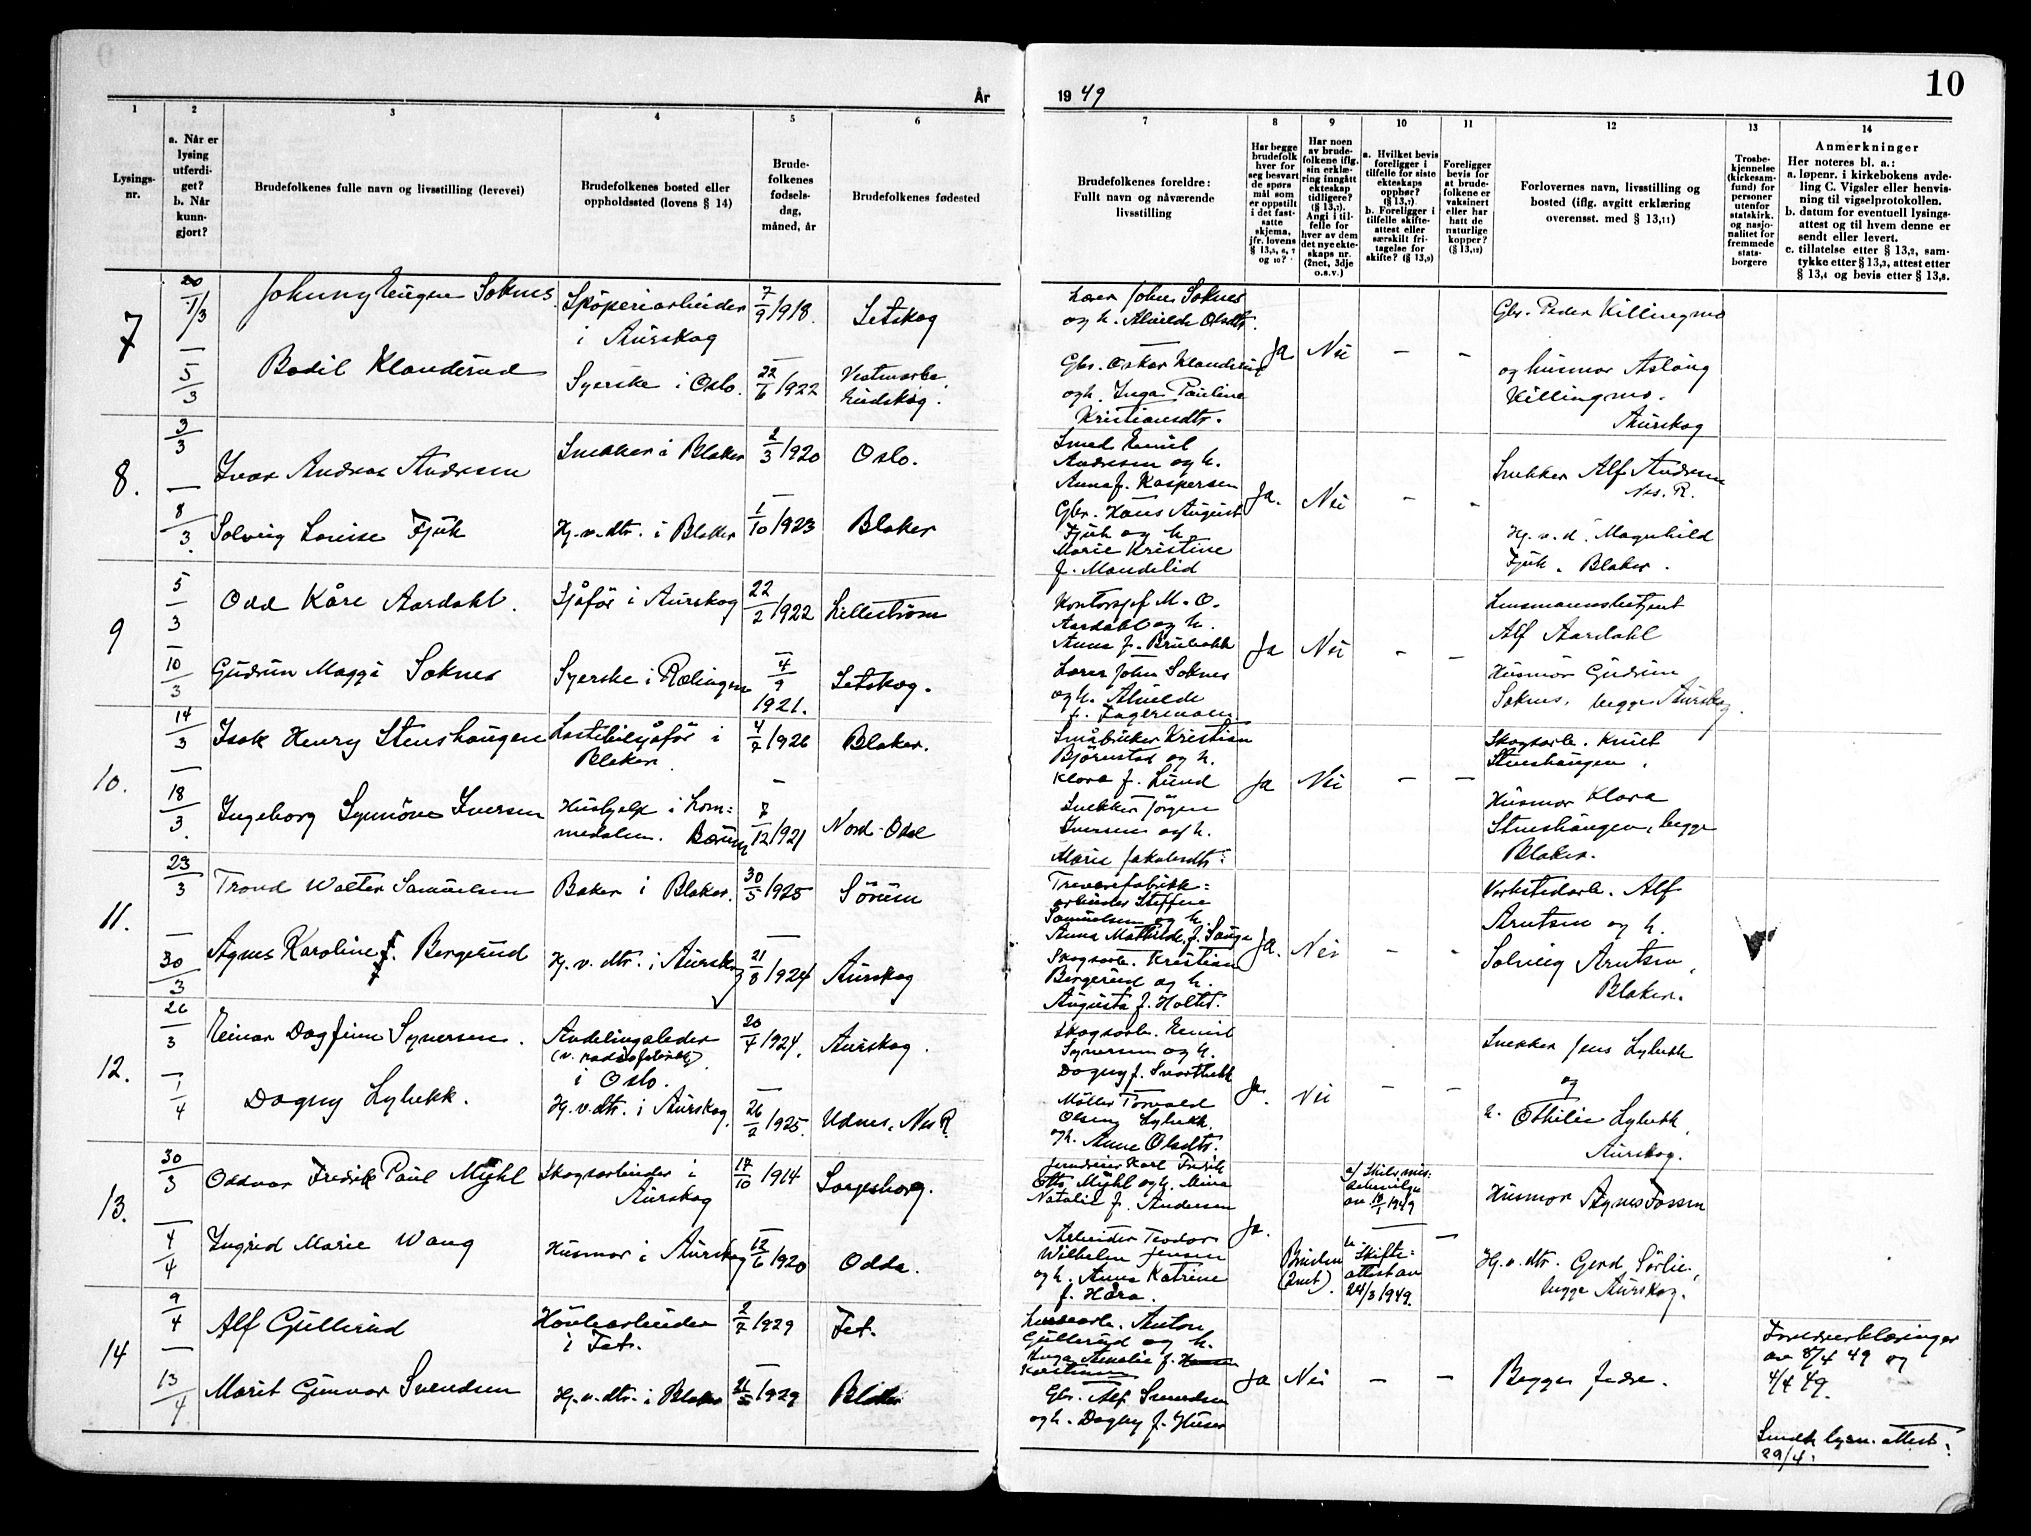 10
År
19 49
1
Lysings-
nr.
2
a. Når er
lysing
utferdi-
get?
b. Når
kunn-
gjort?
3
Brudefolkenes fulle navn og livsstilling (levevei)
4
Brudefolkenes bosted eller
oppholdssted (lovens § 14)
5
Brude-
folkenes
fødsels-
dag,
måned, år
6
Brudefolkenes fødested
7
Brudefolkenes foreldre:
Fullt navn og nåværende
livsstilling
8
Har begge
brudefolk
hver for
seg besvart
de spørs
mål som
er oppstilt
i det fast-
satte
skjema,
jfr. lovens
§ 13,5, 6, 7
og 10?
9
Har noen
av brude-
folkene iflg.
sin erklæ-
ring inngått
ekteskap
tidligere?
(§ 13,7).
Angi i til-
felle for
hver av dem
det nye ekte-
skaps nr.
(2net, 3dje
o.s.v.)
10
a. Hvilket bevis
foreligger i
tilfelle for siste
ekteskaps
opphør?
(§ 13,7)
b. Foreligger i
tilfelle skifte-
attest eller
særskilt fri-
tagelse for
skifte? (§ 13,9)
11
Foreligger
bevis for
at brude-
folkene er
vaksinert
eller har
hatt de
naturlige
kopper?
(§ 13,12)
12
Forlovernes navn, livsstilling og
bosted (iflg. avgitt erklæring
overensst. med § 13,11)
13
Trosbe-
kjennelse
(kirkesam-
fund) for
personer
utenfor
statskirk.
og nasjo-
nalitet for
fremmede
stats-
borgere
14
Anmerkninger
Her noteres bl. a.:
a. løpenr. i kirkebokens avde-
ling C. Vigsler eller henvis-
ning til vigselprotokollen.
b. datum for eventuell lysings-
attest og til hvem denne er
sendt eller levert.
c. tillatelse etter § 13,2, sam-
tykke etter § 13,3, attest etter
§ 13,4 og bevis etter § 13,8.
7
1/3
5/3
Johnny Eugen Soknes
i Aurskog
7/9 1918.
Setskog
Bodil Klanderud
Syerske i Oslo.
22/6 1922
Vestmarka
Eidskog.
Lærer John Soknes
og h. Alvilde Olsdtr.
Gbr. Oskar Klanderud
og h. Inga Pauline
Kristiansdtr.
Ja Nei – –
Gbr. Peder Killingmo
og husmor Aslaug
Killingmo.
Aurskog
8.
3/3
8/3
Ivar Andreas Andresen
Snekker i Blaker
2/3 1920
Oslo.
Solveig Louise Fjuk
Hj.v.dtr. i Blaker
1/10 1923
Blaker
Smed Emil
Andresen og h.
Anna f. Kaspersen
Gbr. Hans August
Fjuk og h.
Marie Kristine
f. Mandelid
Ja. Nei – -
Snekker Alf Andresen
Nes. R.
Hj.v.d. Magnhild
Fjuk. Blaker.
9
5/3
10/3
Odd Kåre Aardahl.
Sjåfør i Aurskog
22/2 1922
Lillestrøm
Gudrun Maggi Soknes
Syerske i Rælingen
4/9 1921.
Setskog.
Kontorsjef M. O.
Aardahl og h.
Anna f. Brubakk
Lærer John Soknes
og h. Alvilde
f. Fagermoen
Ja Nei - –
Lensmannsbetjent
Alf Aardahl
Husmor Gudrun
Soknes, begge Aurskog.
10.
14/3
18/3
Isak Henry Stenshaugen
Lastebilsjåfør i
Blaker.
4/2 1926
Blaker.
Ingeborg Synnöve Iversen
Hushjelp i Lom=
medalen. Bærum
7/12 1921
Nord-Odal
Småbruker Kristian
Björnstad og h.
Klara f. Lund
Snekker Jørgen
Iversen og h.
Marie Jakobsdtr.
Ja Nei – –
Skogsarb. Knut
Stenshaugen.
Husmor Klara
Stenshaugen, begge
Blaker.
11.
23/3
30/3
Trond Walter Samuelsen
Baker i Blaker.
30/5 1925
Sørum
Agnes Karoline f. Bergerud
Hj.v.dtr. i Aurskog
21/8 1924
Aurskog
Trevarefabrikk=
arbeider Steffen
Samuelsen og h.
Anna Mathilde f. Sauge
Skogsarb. Kristian
Bergerud og h.
Augusta f. Holter.
Ja. Nei - -
Verkstedarb. Alf
Arntsen og h.
Solveig Arntsen,
Blaker.
12.
26/3
1/4
Einar Dagfinn Syversen.
Avdelingsleder
(v. radiofabrikk)
i Oslo.
20/4 1924.
Aurskog.
Dagny Lybekk.
Hj.v.dtr. i Aurskog.
26/2 1925.
Udnes, Nes R.
Skogsarb. Emil
Syversen og h.
Dagny f. Svartbekk
Møller Torvald
Olsen Lybekk
og h. Anne Olsdtr.
Ja. Nei – –
Snekker Jens Lybekk
og
h. Othilie Lybekk,
Aurskog.
13.
30/3
4/4
Oddvar Fredrik Paul Myhl
Skogsarbeider i
Aurskog
17/10 1914
Sarpsborg.
Ingrid Marie Wang
Husmor i Aurskog
12/6 1920
Odda.
Karl Fredrik
Otto Myhl og h. Mina
Natalie f. Andersen
Arbeider Teodor
Wilhelm Jensen
og h. Anna Katrine
f. Håra.
Ja.
Bruden
(2net).
av 1949
Skifte=
attest av
24/3 1949.
–
Husmor Agnes Fossen
Hj.v.dtr. Gerd Sörlie,
begge Aurskog.
14
9/4
13/4
Alf Gullerud
Høvlearbeider
i Fet.
2/7 1929
Fet.
Marit Gunvor Svendsen
Hj.v.dtr. i Blaker
21/5 1929
Blaker
Anton
Gullerud og h.
Inga Amalie f.
Gbr. Alf Svendsen
og h. Dagny f. Huser
Ja Nei – –
Begges fedre.
Foreldreerklæringer
av 8/4 49 og
4/4 49.
Sendt lysn.attest.
29/4.